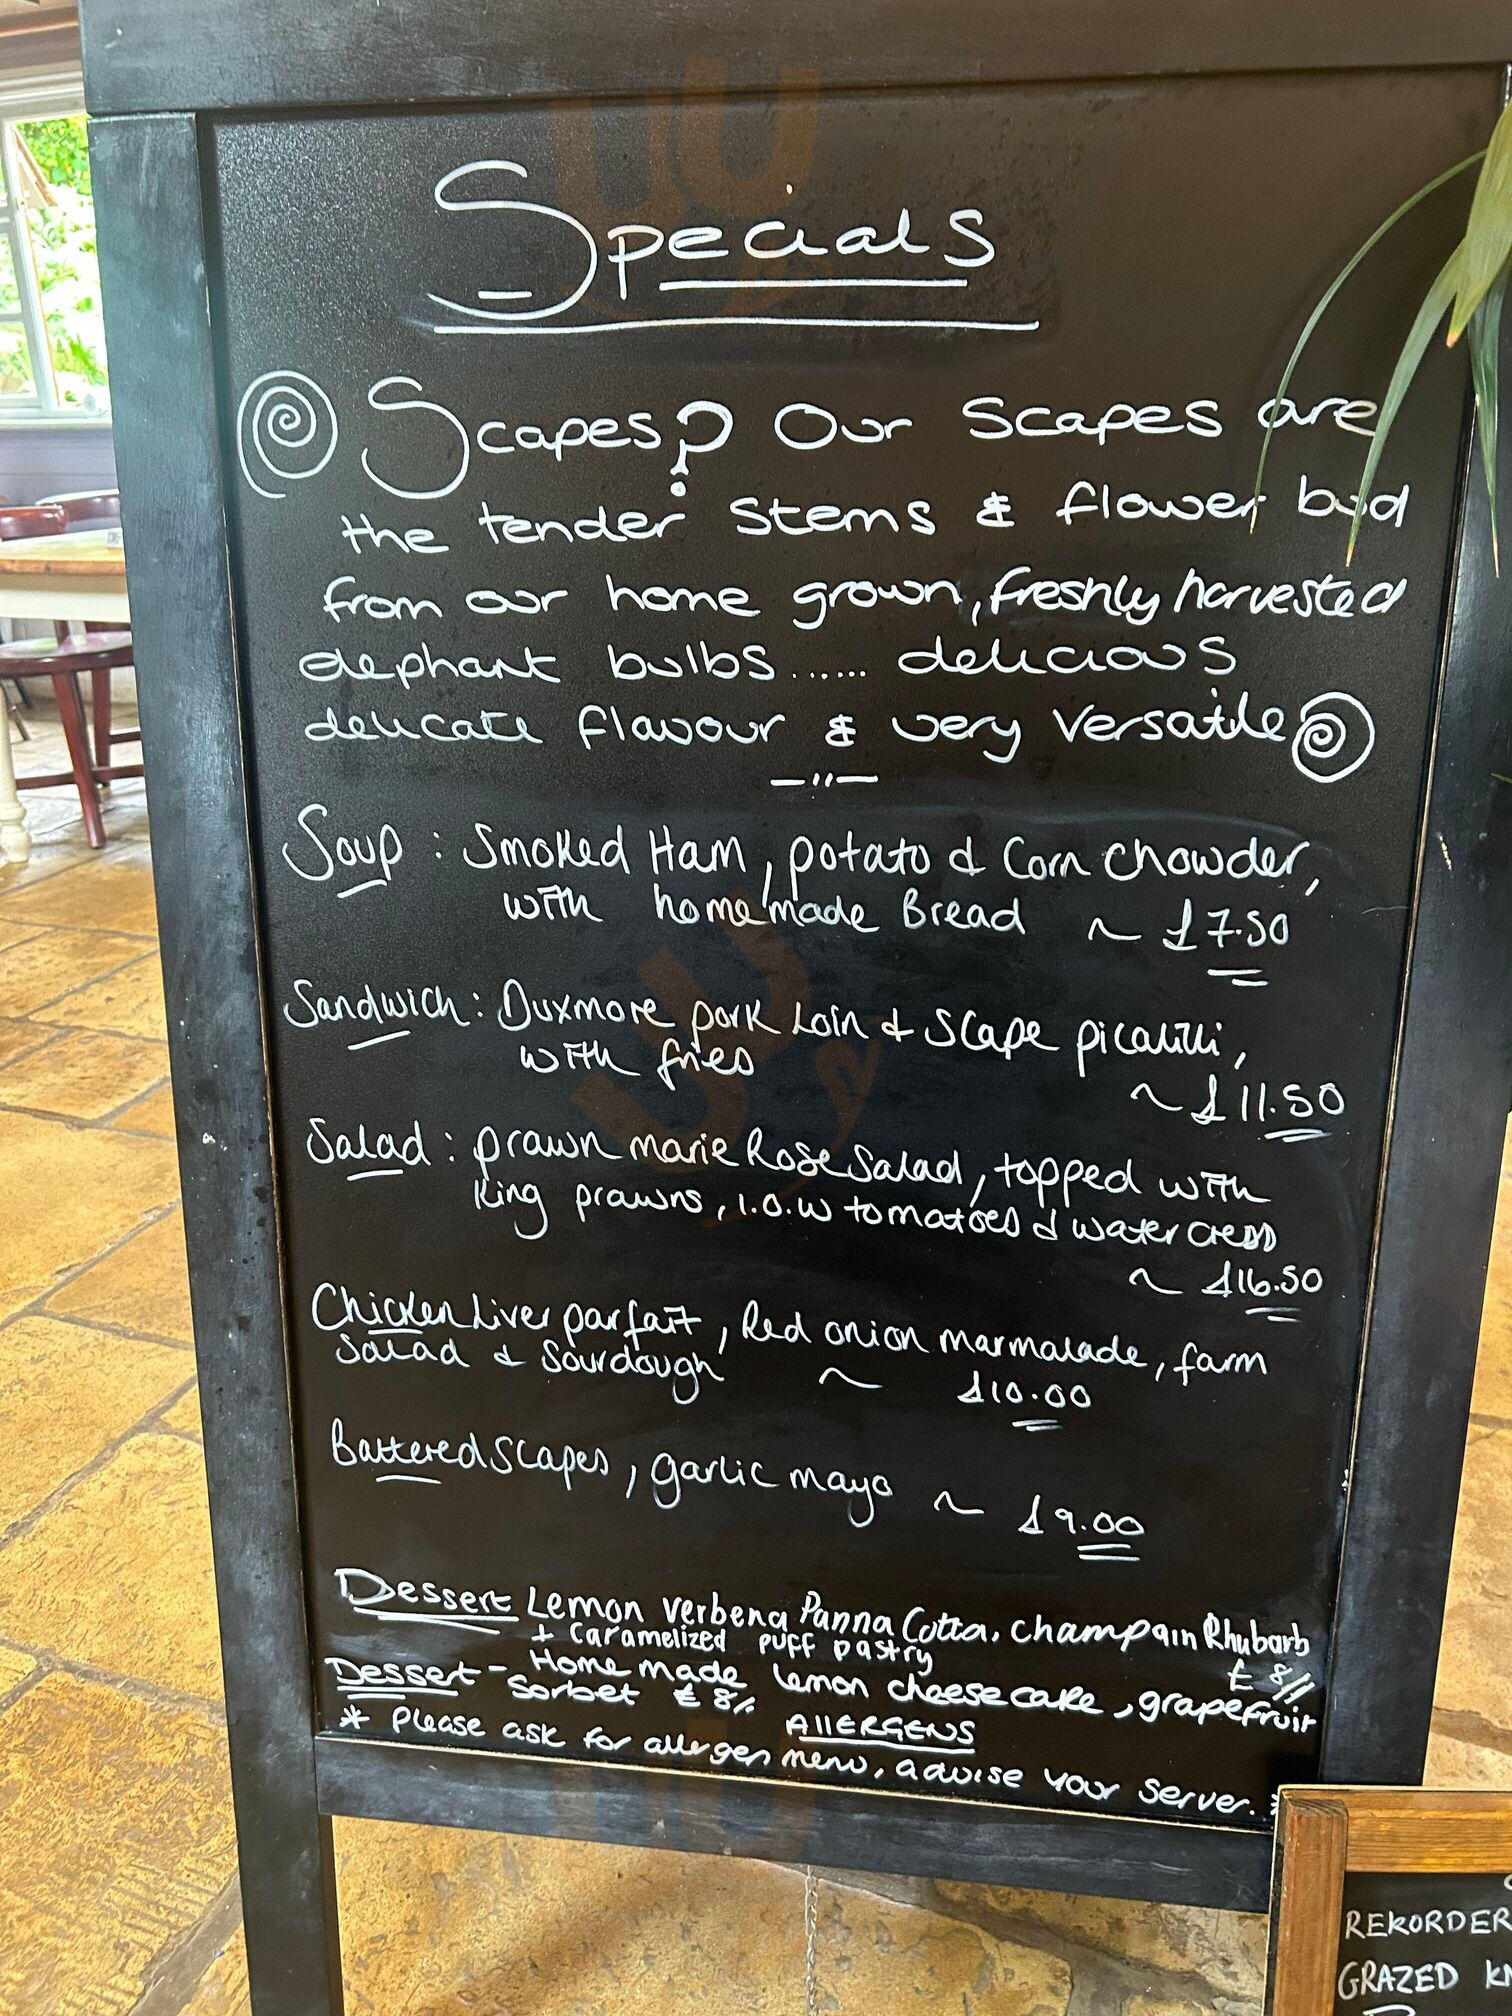 Specials
Scapes? Our Scapes are
the tender stems & flower bud
from our home grown, freshly harvested
elephant bulbs ...... delicious
delicate flavour & very versatile
Soup : Smoked Ham, potato & Corn chowder,
with homemade Bread ~ £7.50
Sandwich : Duxmore pork Loin & Scape picalilli,
with fries
~ £11.50
Salad : prawn marie Rose Salad, topped with
King prawns, I.O.W tomatoes & watercress
~ £16.50
Chicken Liver parfait, Red onion marmalade, farm
Salad & Sourdough ~ £10.00
Battered Scapes, garlic mayo ~ £9.00
Dessert Lemon verbena Panna Cotta. champain Rhubarb
+ caramelized puff pastry £8//
Dessert - Home made lemon cheesecake, grapefruit
Sorbet £8/.
AllERGENS
* Please ask for allergen menu, advise your server. *
REKORDER
GRAZED